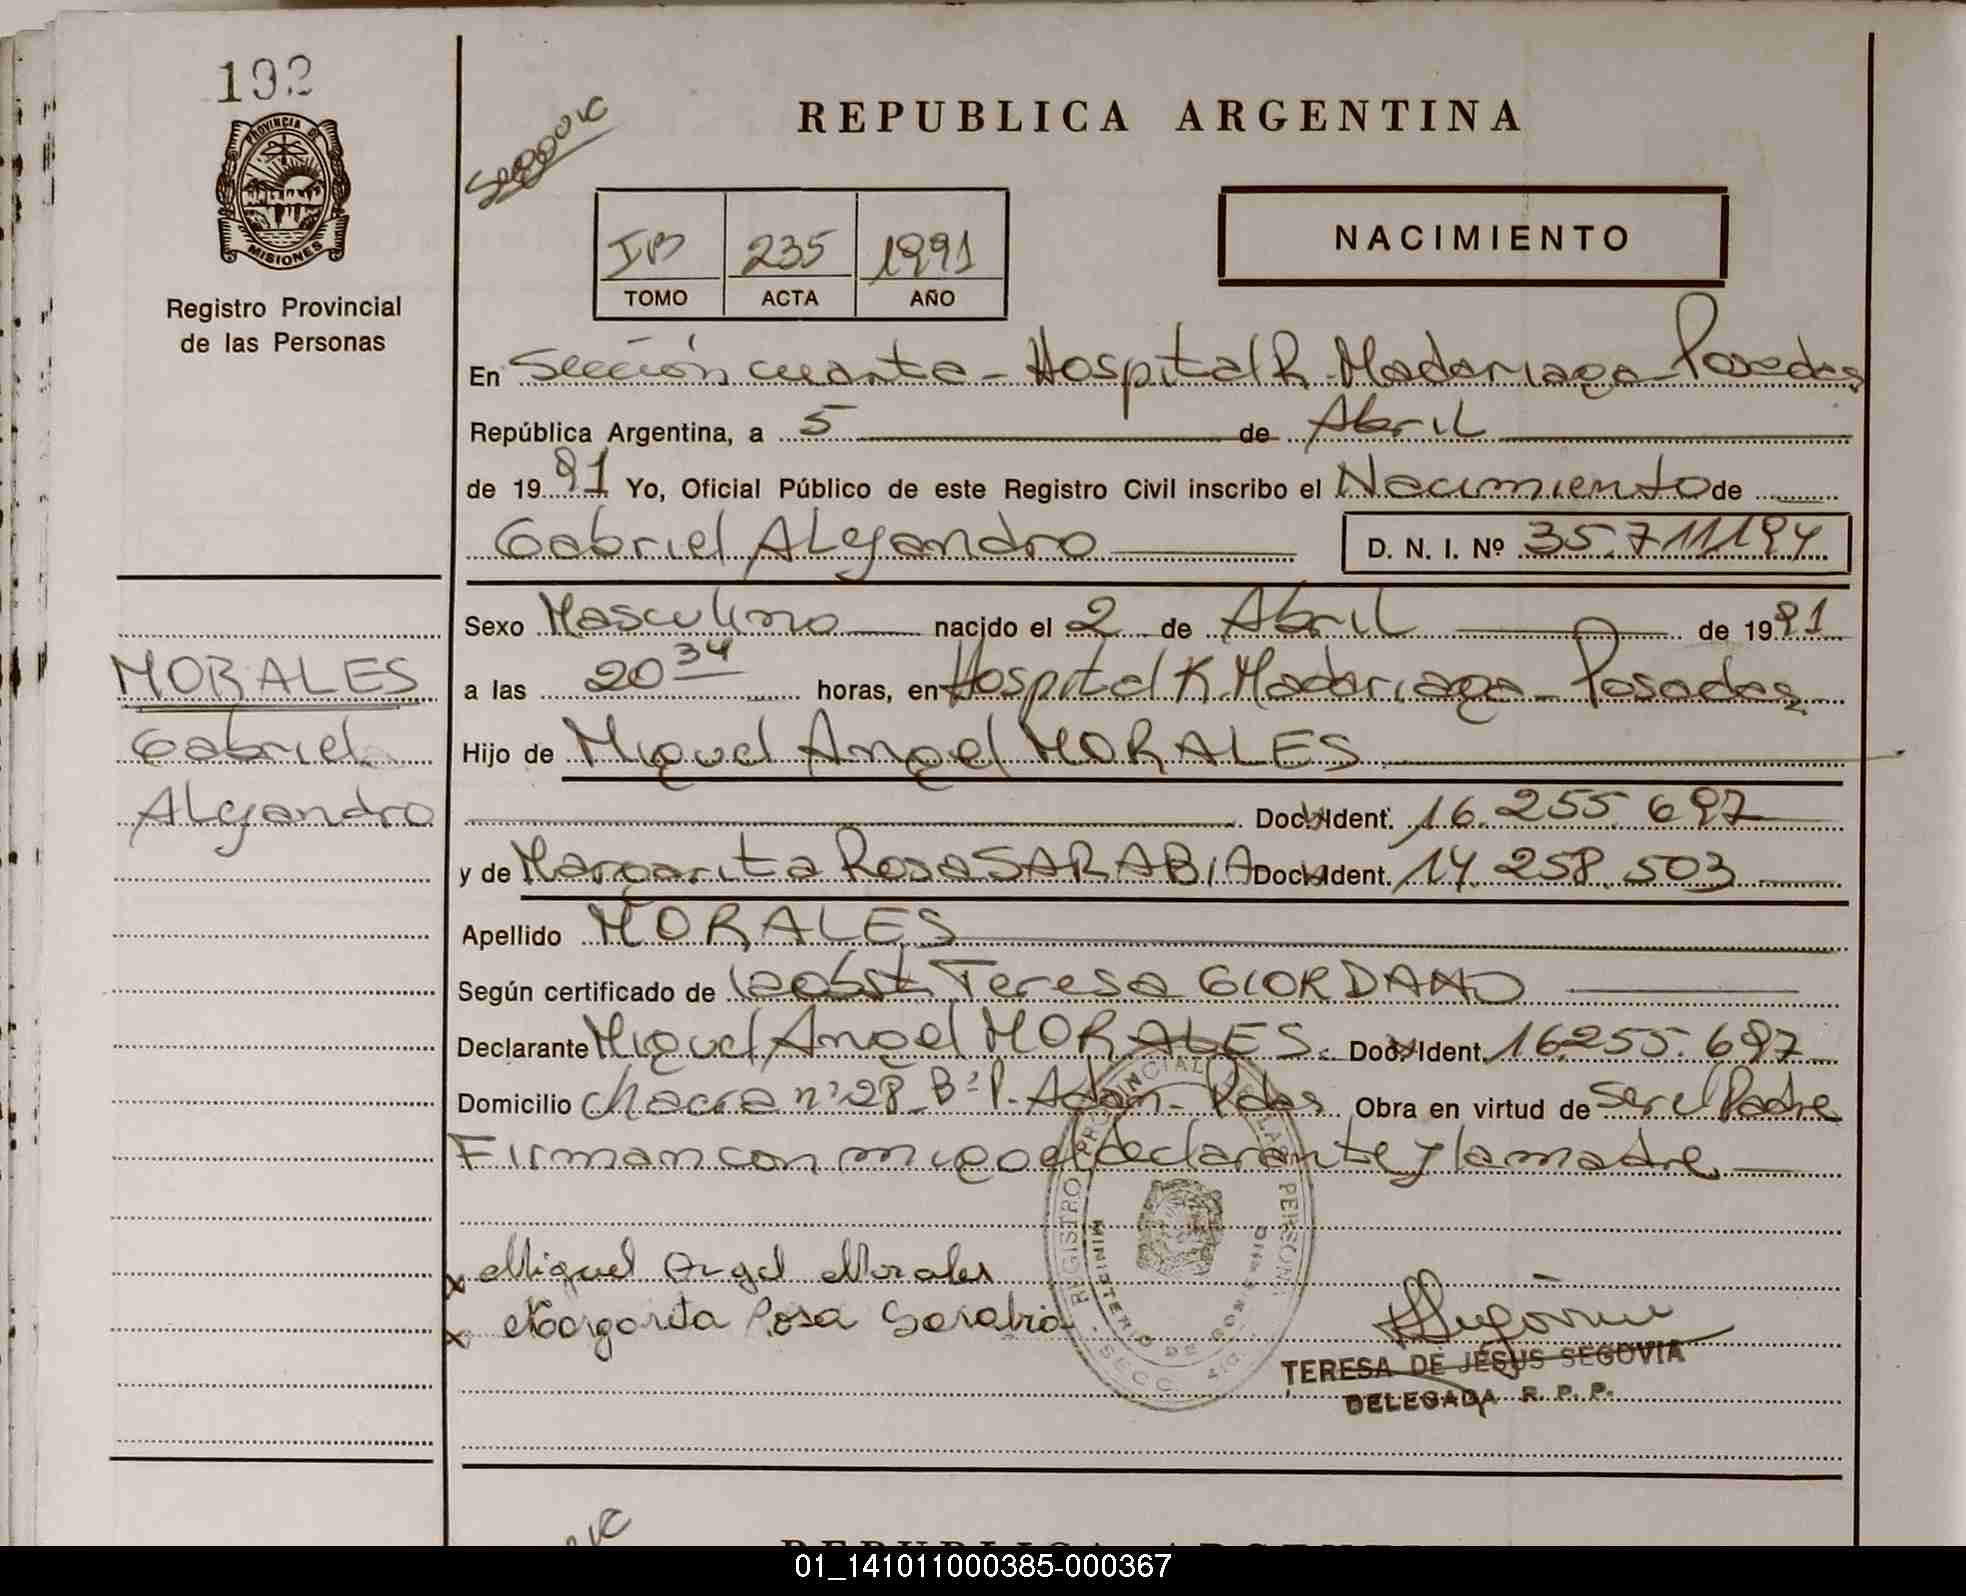 192
PROVINCIA DE
MISIONES
Registro Provincial
de las Personas
MORALES
Gabriel
Alejandro
REPUBLICA ARGENTINA
IB 235 1991
TOMO ACTA AÑO
NACIMIENTO
En Sección cuarta - Hospital R. Madariaga - Posadas
República Argentina, a 5 de Abril
de 1991 Yo, Oficial Público de este Registro Civil inscribo el Nacimiento de
Gabriel Alejandro D. N. I. Nº 35.711194
Sexo Masculino nacido el 2 de Abril de 1991
a las 20 34 horas, en Hospital R. Madariaga - Posadas
Hijo de Miguel Angel MORALES
Doc. Ident. 16.255.697
y de Margarita Rosa SARABIA Doc. Ident. 14.258.503
Apellido MORALES
Según certificado de Teresa GIORDANO
Declarante Miguel Angel MORALES. Doc. Ident. 16255.697
Domicilio Chacra nº 28 Bº P. Adam - Pdas Obra en virtud de ser el Padre
Firman conmigo el declarante y la madre
x Miguel Angel Morales
x Margarita Rosa Sarabia
REGISTRO PROVINCIAL DE LAS PERSONAS
MINISTERIO DE GOBIERNO
SECC.
TERESA DE JESUS SEGOVIA
DELEGADA R. P. P.
REPUBLICA ARGENTI
01_141011000385-000367